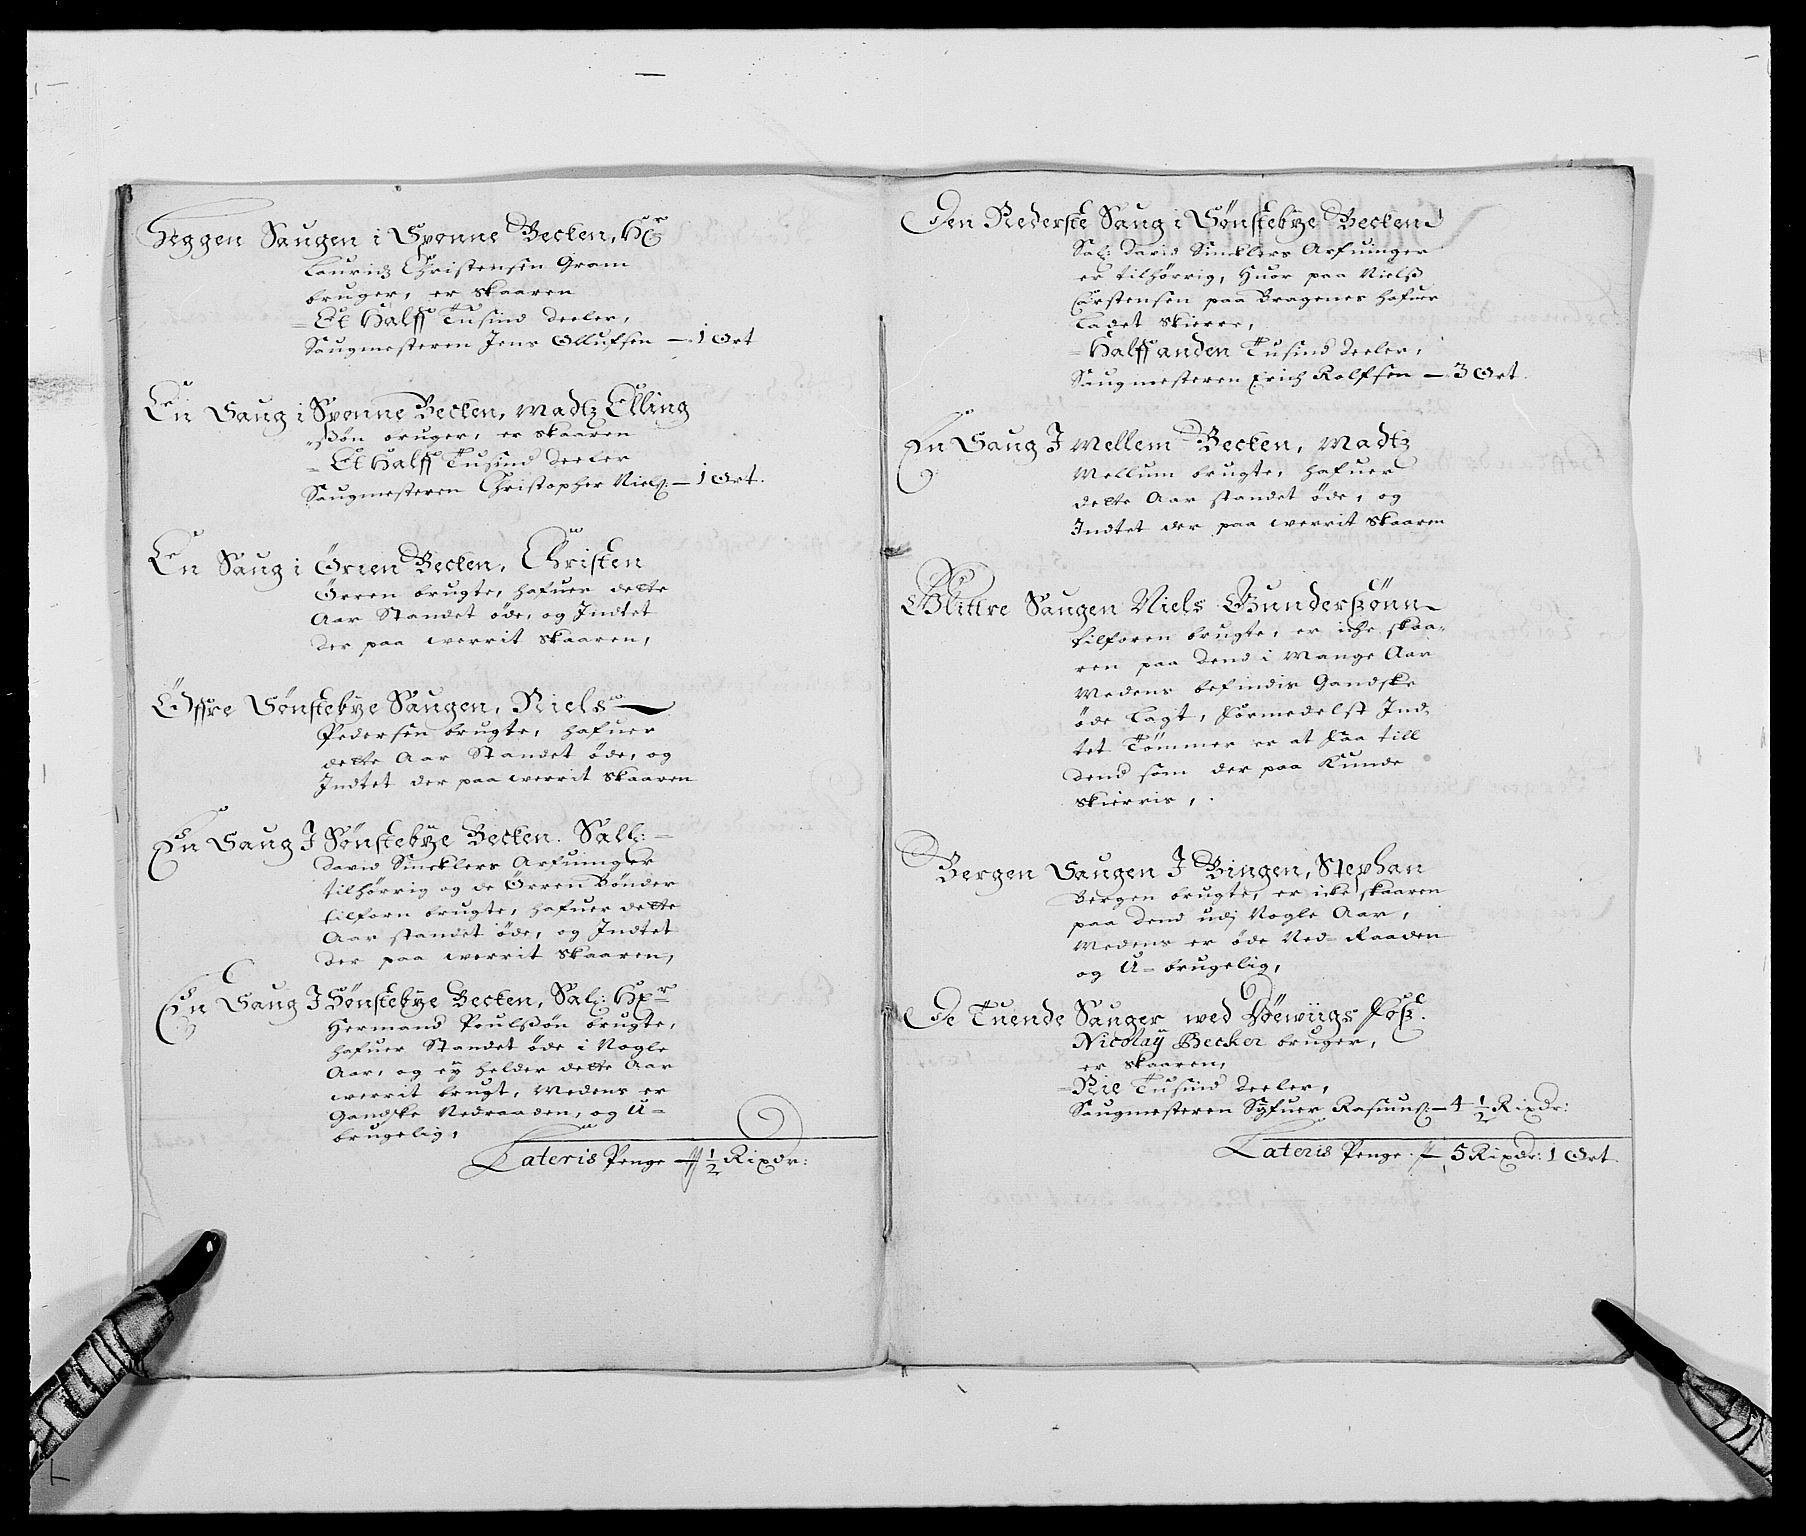 Heggen Saugen i Sponne Becken, Hr
Lauridz Christensen Gram
bruger, er skaaren
Et Halff Tusind deeler,
Saugmesteren Jens Olluffsen — 1 Ort
En Saug i Sponne Becken, Madtz Elling
søn bruger, er skaaren
Et Halff Tusind deeler
Saugmesteren Christopher Niels: — 1 Ort.
En Saug i Ørien Becken, Christen
Ørren brugte, hafuer dette
Aar Standet øde, og Indtet
der paa werrit skaaren,
Øffre Sønstebye Saugen, Niels
Pedersen brugte, hafuer
dette Aar Standet øde, og
Indtet der paa werrit skaaren
En Saug J Sønstebye Becken. Sall:
David Sincklers Arfuinger
tilhørrig og de Ørren Bønder
tilforn brugte, hafuer dette
Aar standet øde, og Indtet
der paa werrit skaaren,
En Saug J Sønstebye Becken, Sal: Hr
Hermand Poulsøn brugte,
hafuer Standet øde i Nogle
Aar, og ey helder dette Aar
werrit brugt, Medens er
Gandske Nedraaden, og U-
brugelig,
Lateris Penge — ½ Rixdr:
Den Nederste Saug i Sønstebye Becken
Sal: David Sincklers Arfuinger
er tilhørrig, Huor paa Nielß
Carstensen paa Bragenes hafuer
Ladet skierre,
Halff anden Tusind deeler,
Saugmesteren Erich Rolfsen — 3 Ort.
En Saug J Mellem Becken, Madtz
Mellum brugte, hafuer
dette Aar standet øde, og
Indtet der paa werrit skaaren
Glittre Saugen Niels Gunderßønn
tilforen brugte, er iche skaa-
ren paa dend i Mange Aar
Medens befindis Gandske
øde Lagt, formedelst Ind-
tet Tømmer er at faa till
dend som der paa Kunde
skierris,
Bergen Saugen J Bingen, Stephan
Bergen brugte, er icke skaaren
paa dend udj Nogle Aar,
Medens er øde Ned-Raaden
og U-brugelig,
De Tuende Sauger wed Døewiigs Foß.
Nicolaÿ Becker bruger,
er skaaren,
Nie Tusind deeler,
Saugmesteren Syfuer Rasmuß: — 4 ½ Rixdr:
Lateris Penge — 5 Rixdr: 1 Ort.